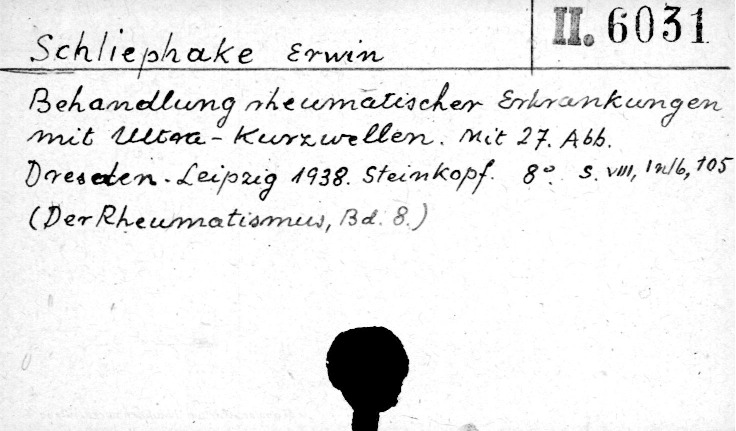 II. 6031
Schliephake Erwin
Behandlung rheumatischer Erkrankungen
mit Ultra-Kurzwellen. Mit 27. Abb.
Dresden-Leipzig 1938. Steinkopf. 8° S. VIII, 105
(Der Rheumatismus, Bd. 8.)